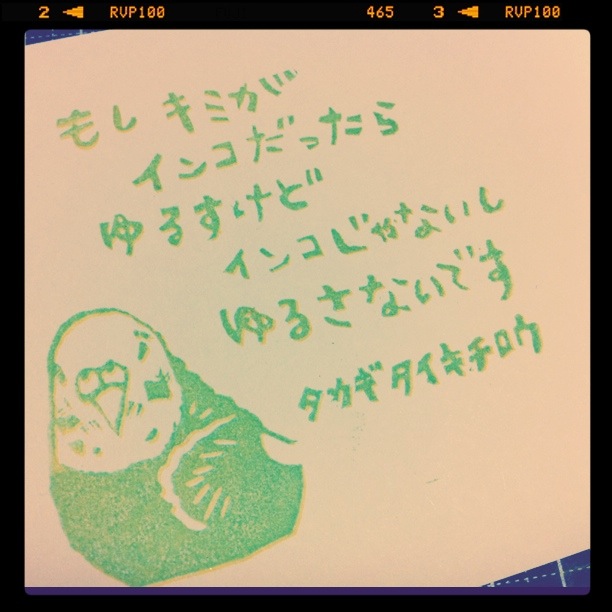 2 RVP100 465 3 RVP100
もし キミが
インコだったら
ゆるすけど
インコじゃないし
ゆるさないです
タカギタイキチロウ